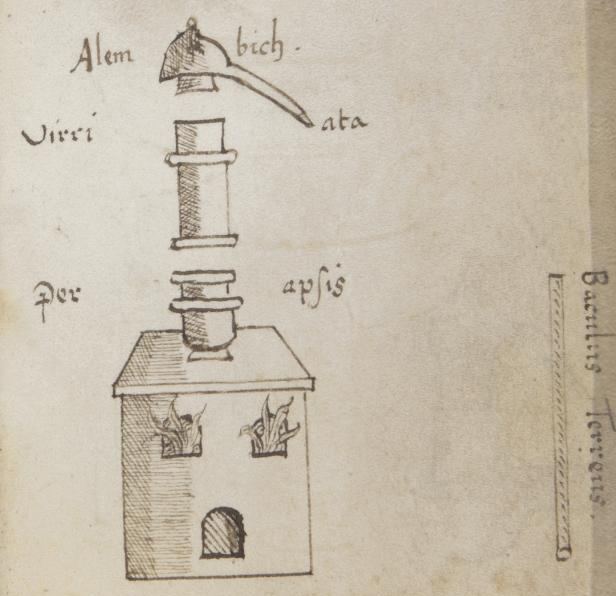 Alem bich.
Virri ata
Per apsis
Baculus Ferreus.